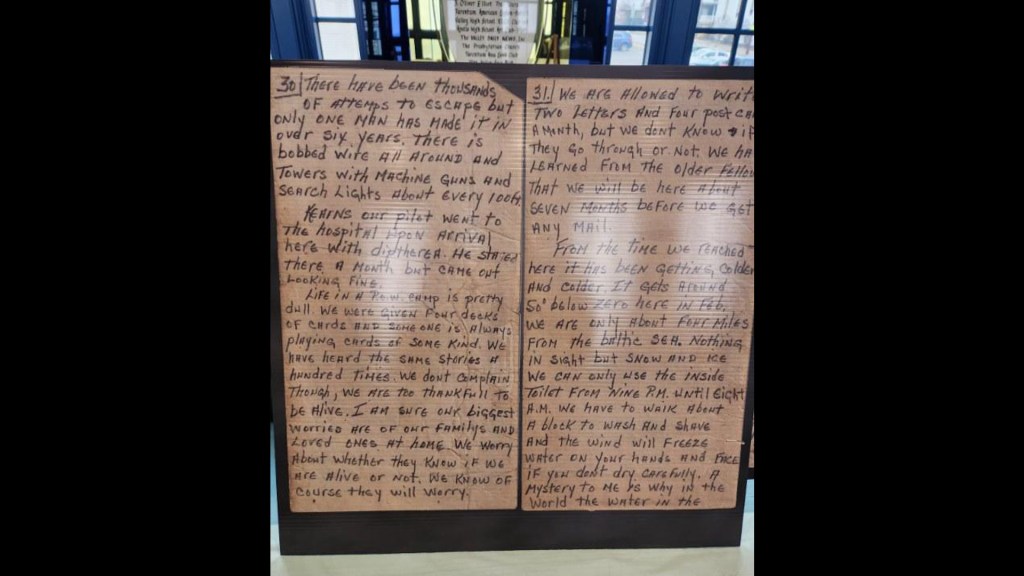 Valley High School
The VALLEY DAILY NEWS Inc
The Presbyterian Church
30 There have been thousands
of attemps to escape but
only one man has made it in
over six years. There is
bobbed wire all around and
towers with machine guns and
search lights about every 100ft.
Kearns our pilot went to
the hospital upon arrival
here with diptherea. He stayed
there a month but came out
looking fine.
Life in a P.O.W. camp is pretty
dull. We were given four decks
of cards and someone is always
playing cards of some kind. We
have heard the same stories a
hundred times. We dont complain
though, we are too thankfull to
be alive. I am sure our biggest
worries are of our familys and
loved ones at home. We worry
about whether they know if we
are alive or not. We know of
course they will worry.
31. We are allowed to writ
two letters and four post ca
a month, but we dont know if
they go through or not. We ha
learned from the older fellow
that we will be here about
seven months before we get
any mail.
From the time we reached
here it has been getting colder
and colder. It gets around
50° below zero here in Feb.
We are only about four miles
from the baltic sea. Nothing
in sight but snow and ice
We can only use the inside
toilet from nine P.M. until eight
A.M. We have to walk about
a block to wash and shave
and the wind will freeze
water on your hands and face
if you dont dry carefully. A
mystery to me is why in the
world the water in the